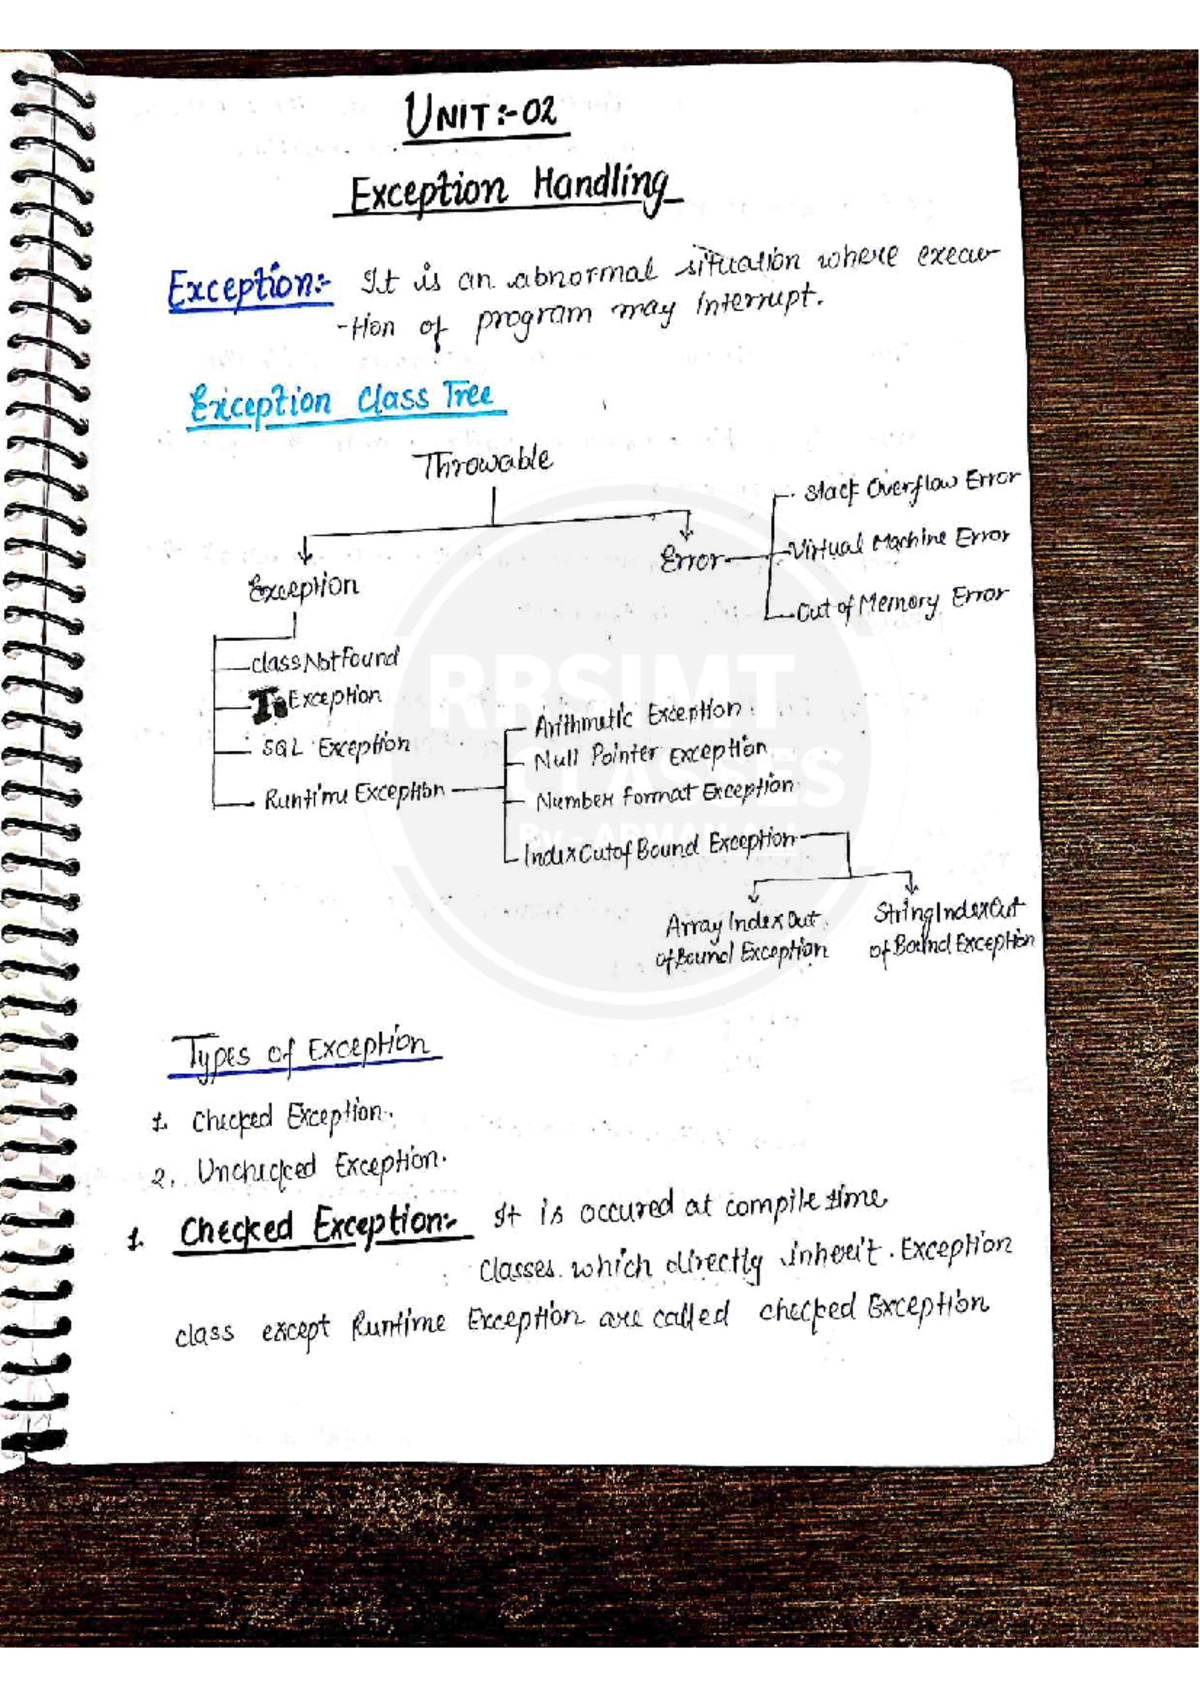 UNIT:-02
Exception Handling
Exception:- It is an abnormal situation where execu-
-tion of program may interrupt.
Exception Class Tree
Throwable
Stack Overflow Error
Error
Virtual Machine Error
Out of Memory Error
Exception
classNotFound
Exception
SQL Exception
Runtime Exception
Arithmatic Exception
Null Pointer Exception
Number format Exception
IndexOutof Bound Exception
ArrayIndexOut
of Bound Exception
StringIndexOut
of Bound Exception
RRSIMT
CLASSES
Types of Exception
1. Checked Exception.
2. Unchecked Exception.
1. Checked Exception:- It is occured at compile time
Classes which directly inherit Exception
class except Runtime Exception are called checked Exception